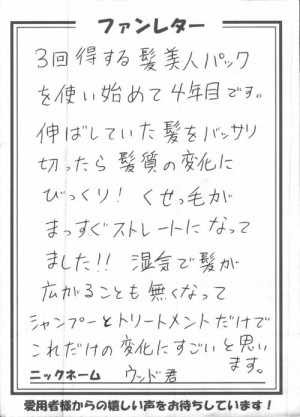 ファンレター
3回得する髪美人パック
を使い始めて4年目です。
伸ばしていた髪をバッサリ
切ったら髪質の変化に
びっくり！くせっ毛が
まっすぐストレートになって
ました!! 湿気で髪が
広がることも無くなって
シャンプーとトリートメントだけで
これだけの変化にすごいと思い
ます。
ニックネーム ウッド君
愛用者様からの嬉しい声をお待ちしています！